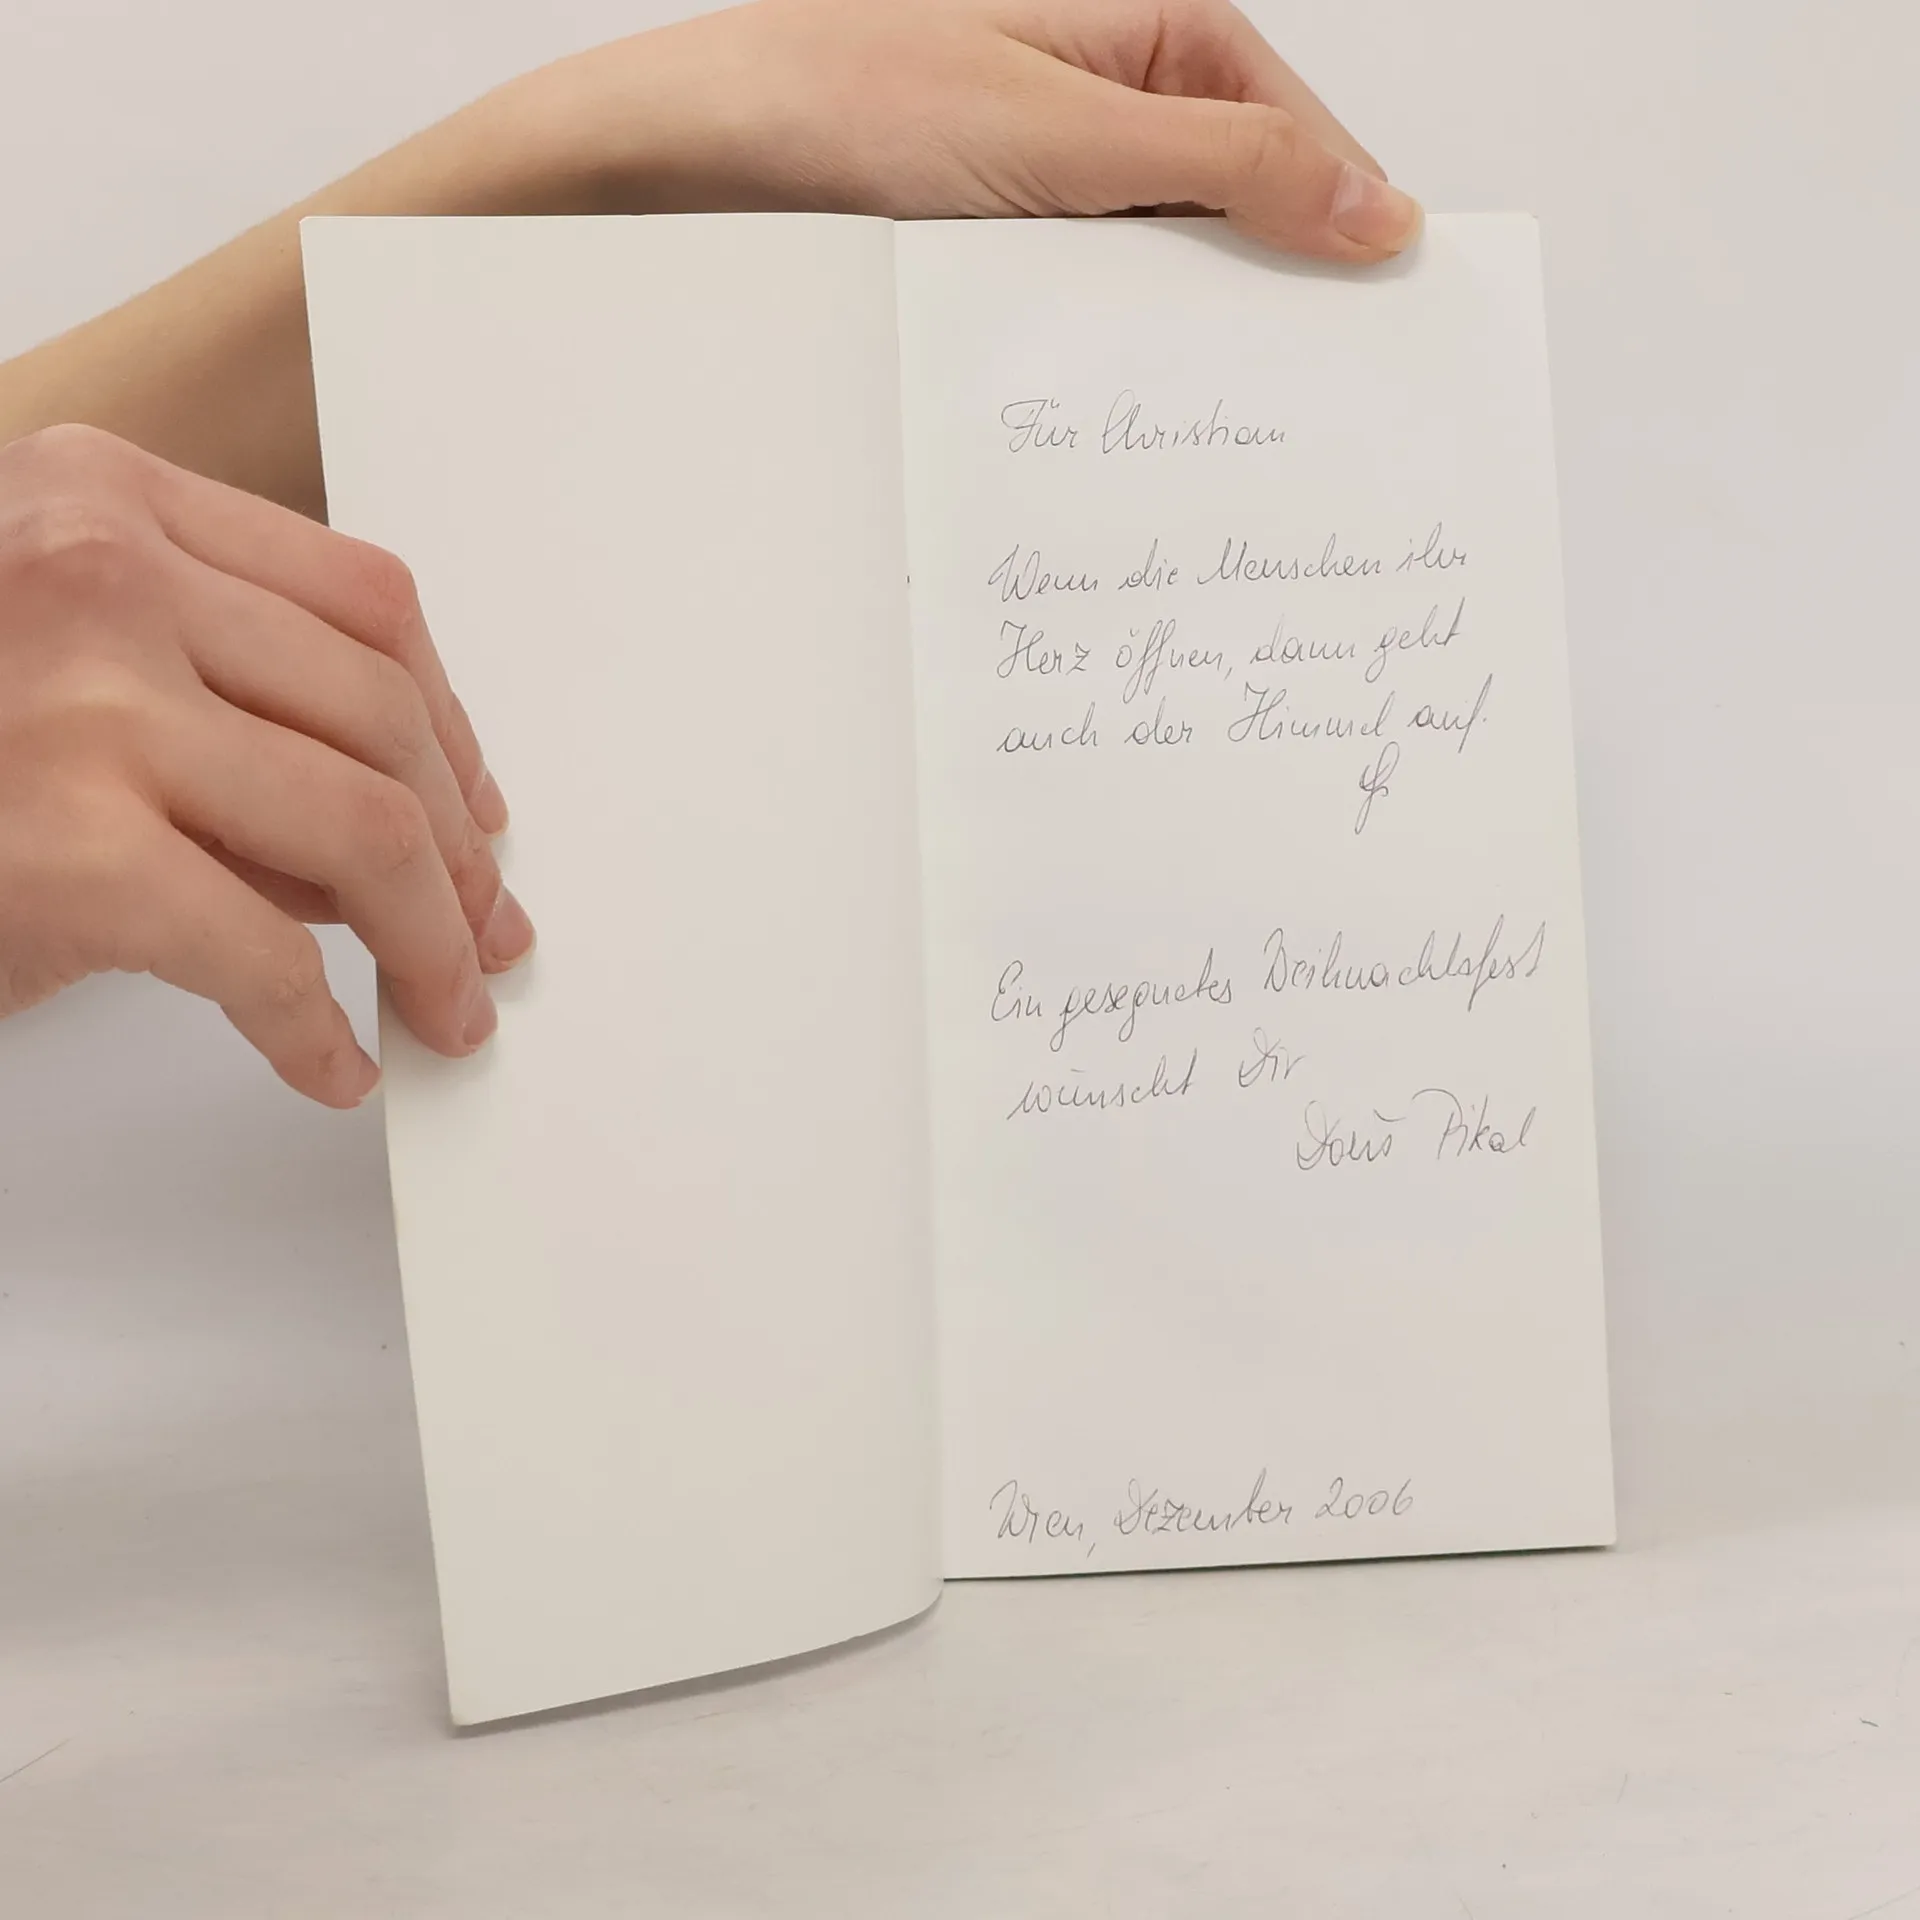 Für Christian
Wenn die Menschen ihr
Herz öffnen, dann geht
auch der Himmel auf.
Ein gesegnetes Weihnachtsfest
wünscht Dir
Doris Pikal
Wien, Dezember 2006